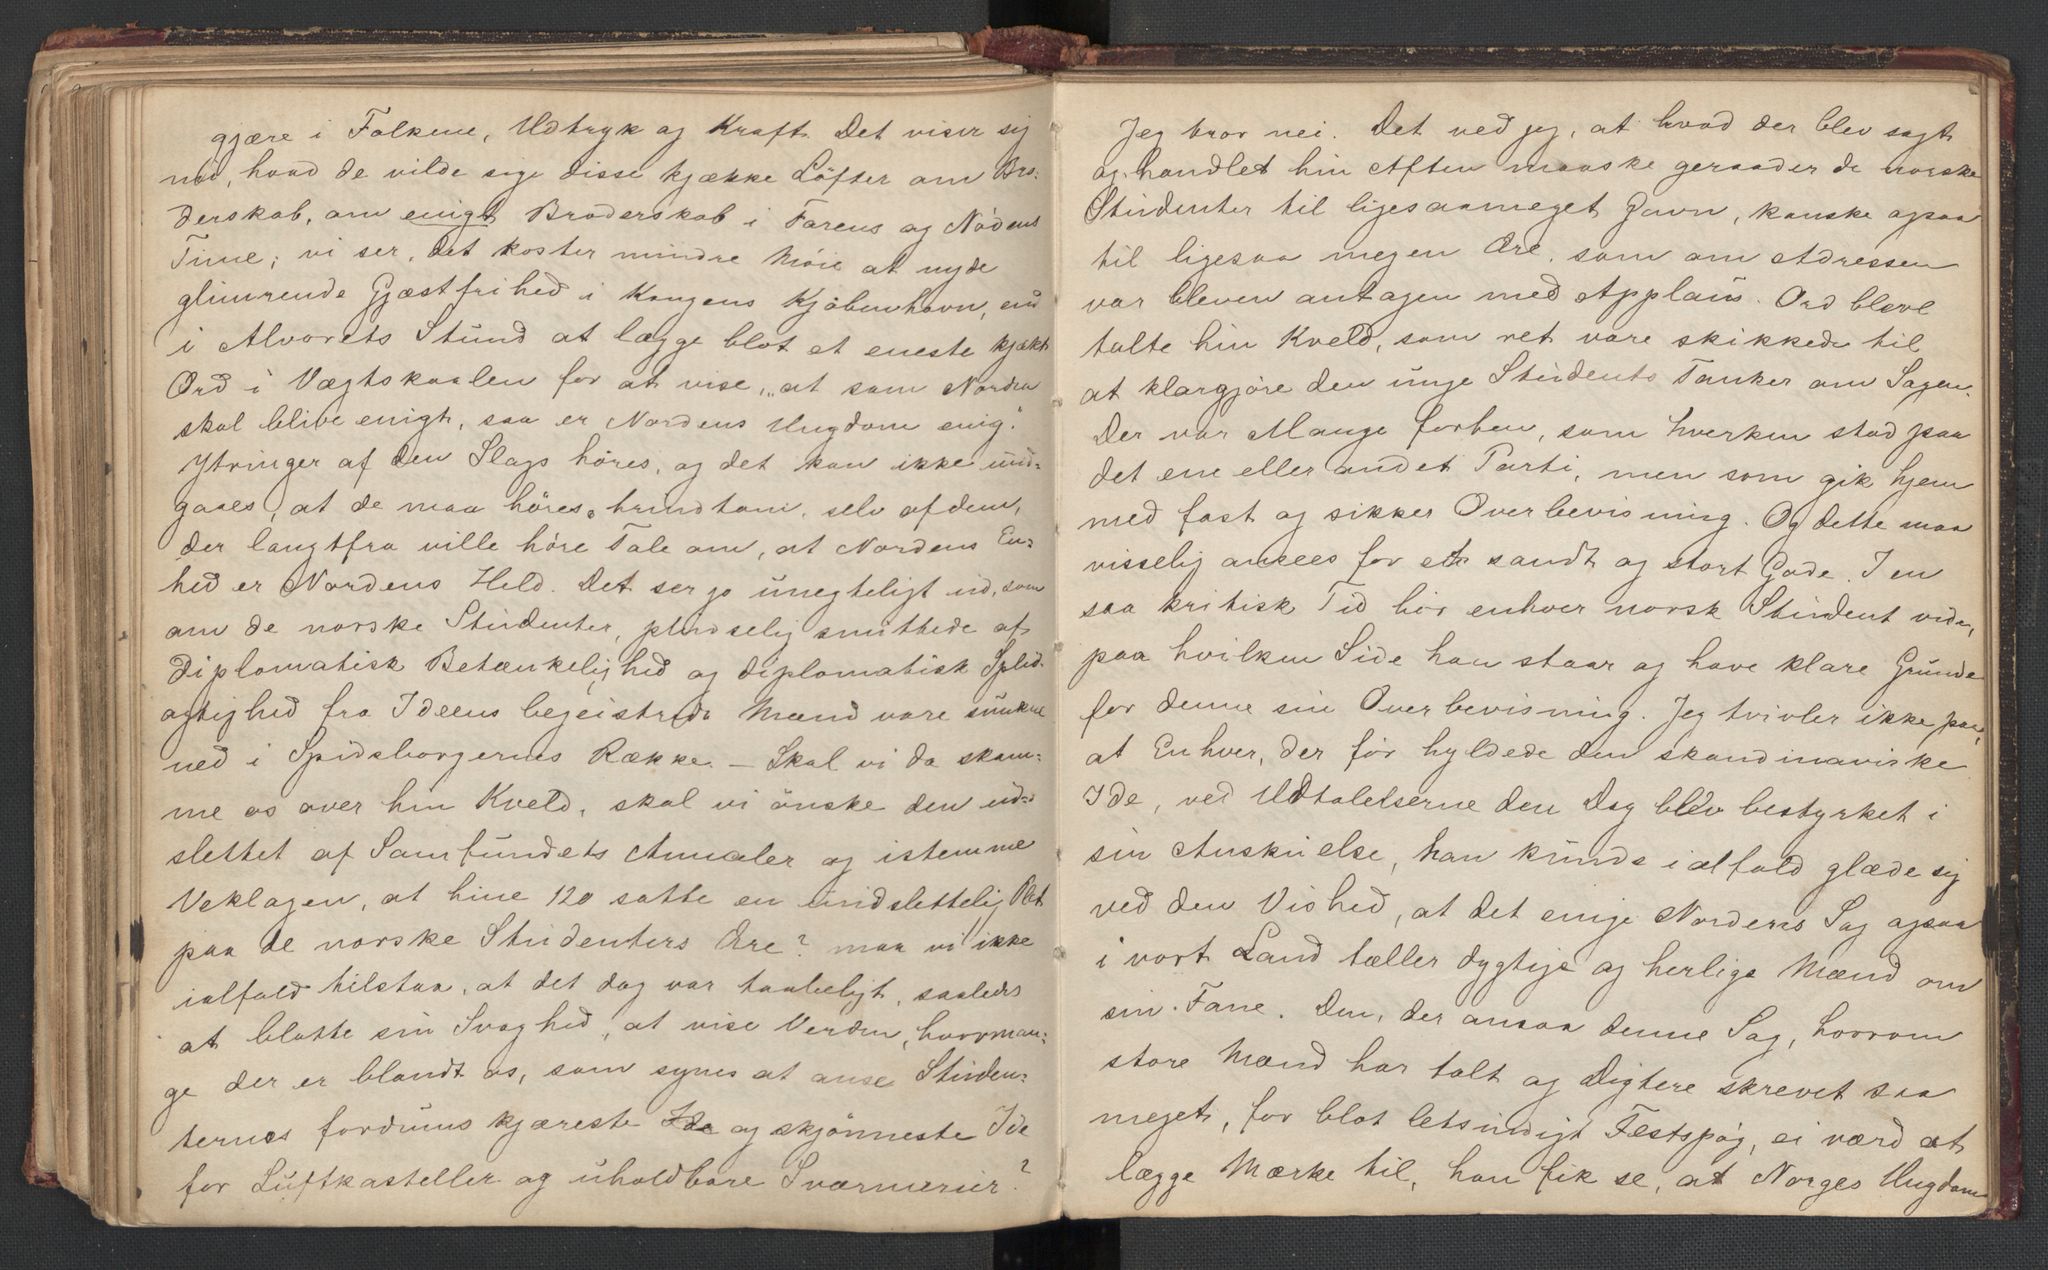 gjære i Folkene, Udtryk og Kraft. Det viser sig
nu, hvad de vilde sige disse kjække Löfter om Bro-
derskab, om enigt Broderskab i Farens og Nödens
Time; vi ser, det koster mindre Möie at nyde
glimrende Gjæstfrihed i Kongens Kjöbenhavn, end
i Alvorets Stund at lægge blot et eneste kjækt
Ord i Vægtskaalen for at vise, „at som Norden
skal blive enigt, saa er Nordens Ungdom enig.“
Ytringer af den Slags höres, og det kan ikke und-
gaaes, at de maa höres trindtom, selv af dem,
der langtfra ville höre Tale om, at Nordens En-
hed er Nordens Held. Det ser jo unegteligt ud, som
om de norske Studenter, pludselig smittede af
diplomatisk Betænkelighed og diplomatisk Splid-
agtighed fra Ideens begeistrede Mænd vare sunkne
ned i Spidsborgernes Række. — Skal vi da skam-
me os over hin Kveld, skal vi önske den ud-
slettet af Samfundets Annaler og istemme
Veklagen, at hine 120 satte en uudslettelig Plet
paa de norske Studenters Ære? maa vi ikke
ialfald tilstaa, at det dog var taabeligt, saaledes
at blotte sin Svaghed, at vise Verden, hvorman-
ge der er blandt os, som synes at anse Studen-
ternes fordums kjæreste Ide og skjönneste Ide
for Luftkasteller og uholdbare Sværmerier?
Jeg tror nei. Det ved jeg, at hvad der blev sagt
og handlet hin Aften maaske geraader de norske
Studenter til ligesaameget Gavn, kanske ogsaa
til ligesaa megen Ære, som om Adressen
var bleven antagen med Applaus. Ord bleve
talte hin Kveld, som ret vare skikkede til
at klargjöre den unge Students Tanker om Sagen.
Der var Mange forhen, som hverken stod paa
det ene eller andet Parti, men som gik hjem
med fast og sikker Overbevisning. Og dette maa
visselig ansees for et sandt og stort Gode. I en
saa kritisk Tid bör enhver norsk Student vide,
paa hvilken Side han staar og have klare Grunde
for denne sin Overbevisning. Jeg tvivler ikke paa,
at Enhver, der för hyldede den skandinaviske
Ide, ved Udtalelserne den Dag blev bestyrket i
sin Anskuelse, han kunde ialfald glæde sig
ved den Vished, at det enige Nordens Sag ogsaa
i vort Land tæller dygtige og herlige Mænd om
sin Fane. Den, der ansaa denne Sag, hvorom
store Mænd har talt og Digtere skrevet saa
meget, for blot letsindigt Festspög, ei værd at
lægge Mærke til, han fik se, at Norges Ungdom